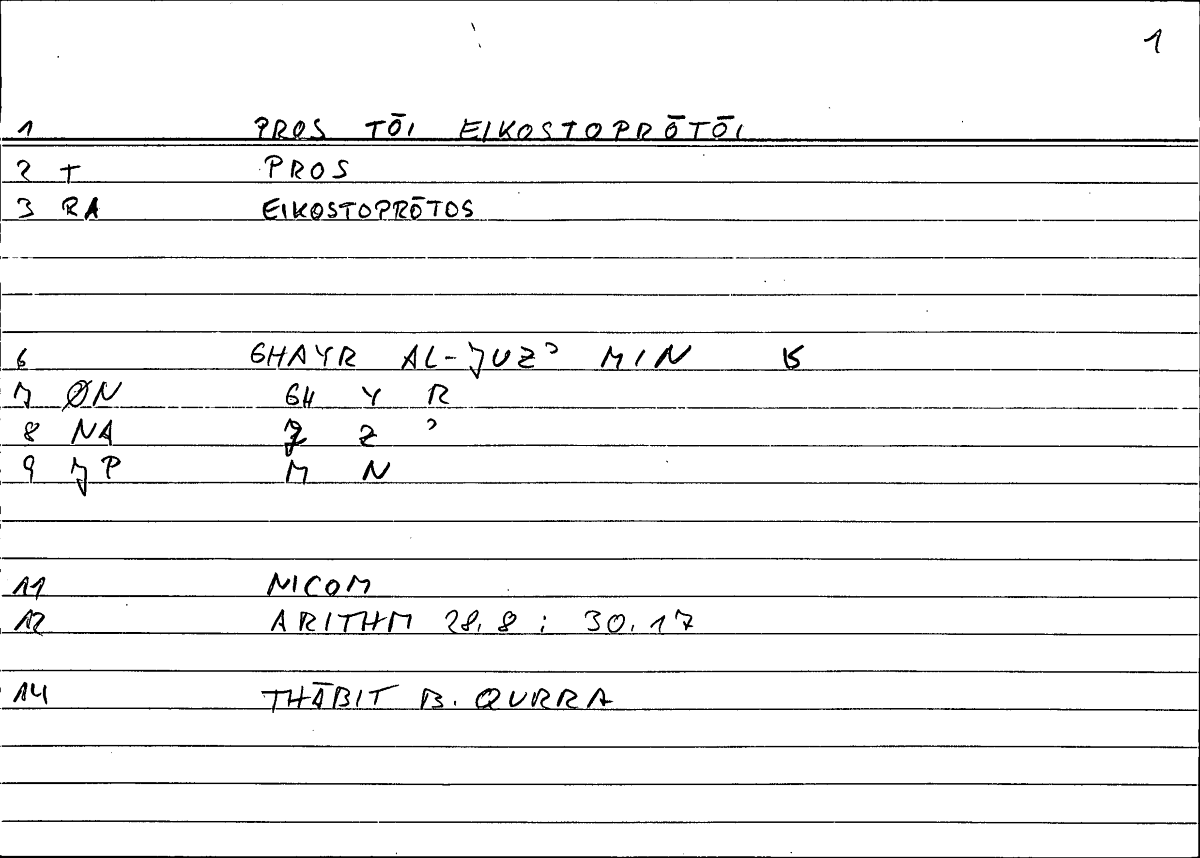 1
1 PROS TŌI EIKOSTOPRŌTŌI
2 T PROS
3 RA EIKOSTOPRŌTOS
6 GHAYR AL-JUZʾ MIN
7 ØN GH Y R
8 NA J Z ʾ
9 JP M N
11 NICOM
12 ARITHM 28.8 ; 30.17
14 THĀBIT B. QURRA